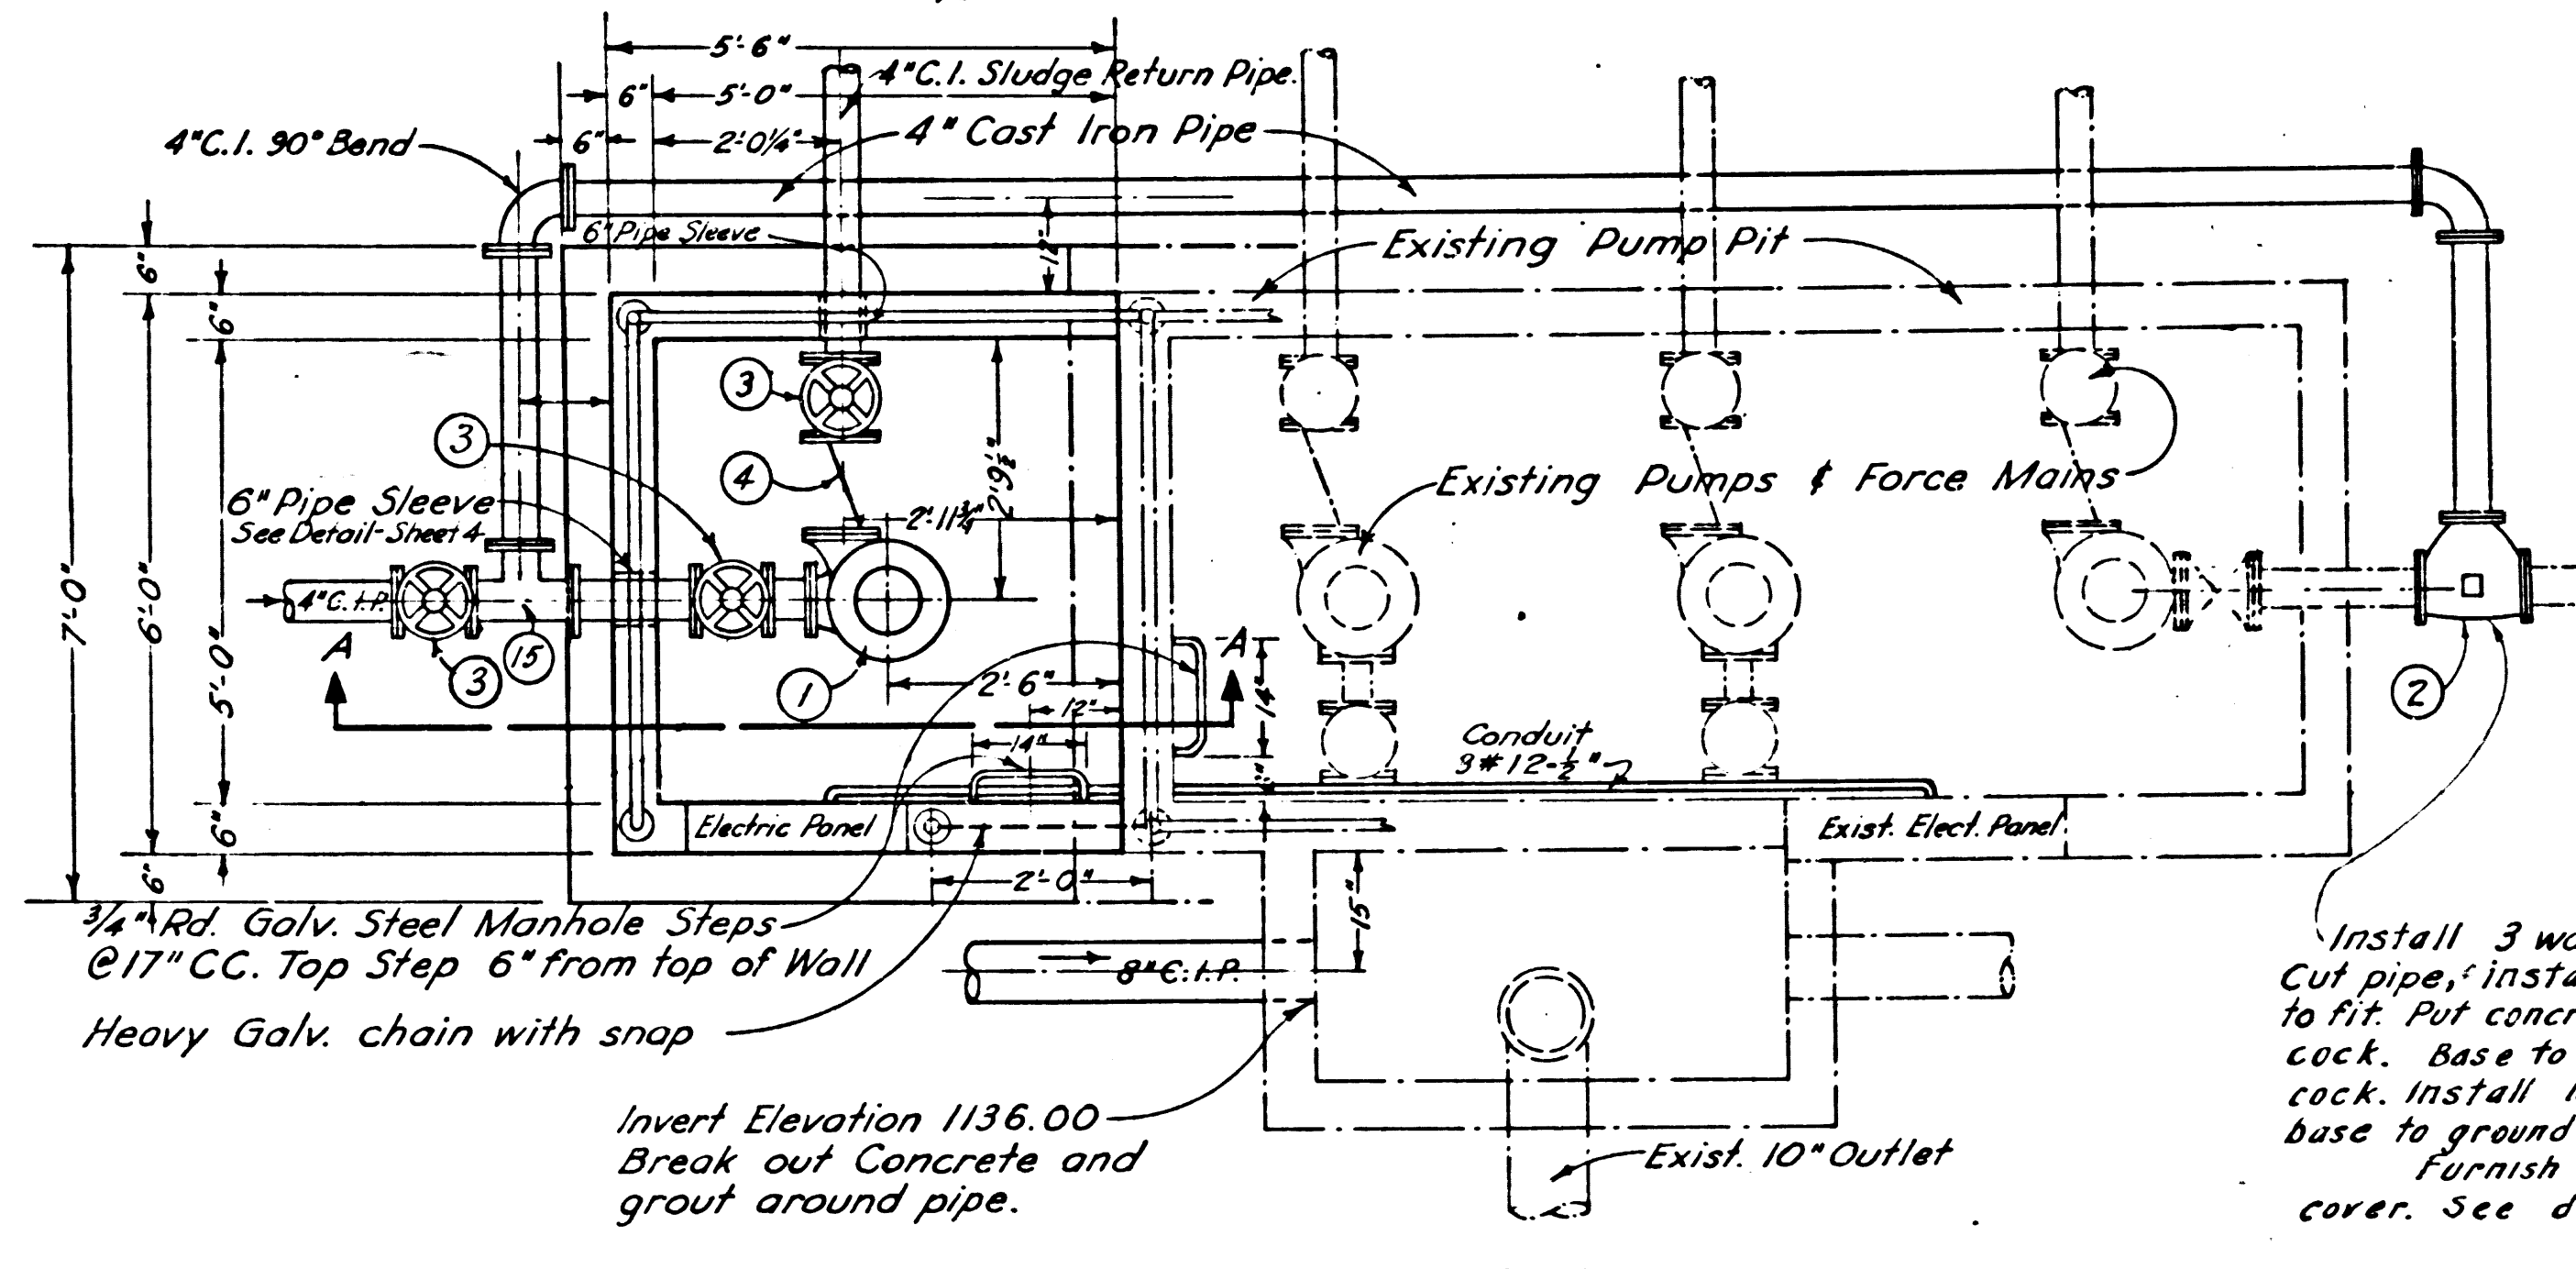 5'-6"
4"C.I. Sludge Return Pipe.
6" 5'-0"
4"C.I. 90° Bend
6" 2'-0¼"
4" Cast Iron Pipe
6" Pipe Sleeve
12"
Existing Pump Pit
6"
6"
3
3
4
2'-9½"
Existing Pumps & Force Mains
6" Pipe Sleeve
See Detail-Sheet 4
2'-11¾"
7'-0"
6'-0"
5'-0"
4"C.I.P.
A
15
3
1
2'-6"
A
14"
2
12"
14"
Conduit
3#12-½"
6"
Electric Panel
Exist. Elect. Panel
6"
2'-0"
15"
¾" Rd. Galv. Steel Manhole Steps
@17"CC. Top Step 6" from top of Wall
8"C.I.P.
Heavy Galv. chain with snap
Invert Elevation 1136.00
Break out Concrete and
grout around pipe.
Exist. 10" Outlet
Install 3
Cut pipe,
to fit. Put
cock. Base to
cock. Install
base to ground
Furnish
cover. See